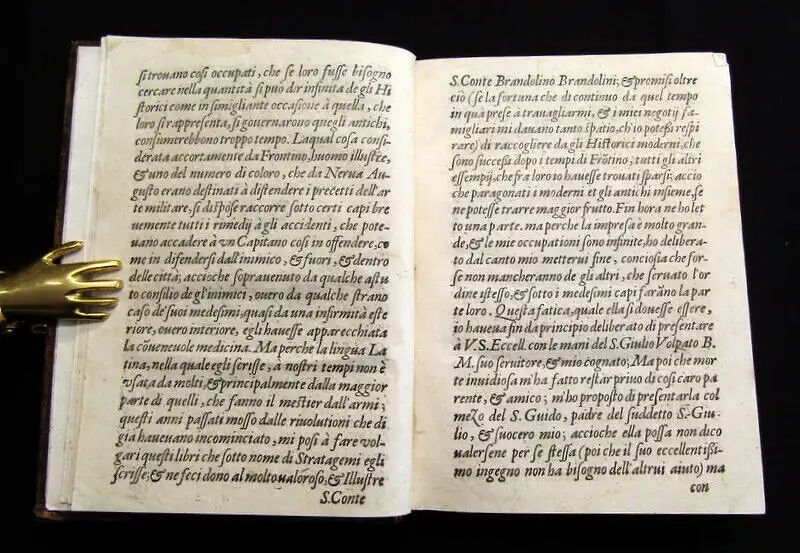 si trouano cosi occupati, che se loro fusse bisogno
cercare nella quantità si può dir infinita de gli Hi
storici come in simigliante occasione à quella, che
loro si rappresenta, si gouernarono quegli antichi,
consumerebbono troppo tempo. Laqual cosa consi-
derata accortamente da Frontino, huomo illustre,
& uno del numero di coloro, che da Nerua Au-
gusto erano destinati à distendere i precetti dell'ar
te militare, si dispose raccorre sotto certi capi bre
uemente tutti i rimedij à gli accidenti, che pote-
uano accadere à vn Capitano cosi in offendere, co
me in difendersi dall'inimico, & fuori, & dentro
delle città; accioche soprauenuto da qualche astu
to consilio de gl'inimici, ouero da qualche strano
caso de suoi medesimi, quasi da una infirmità este
riore, ouero interiore, egli hauesse apparecchiata
la cōueneuole medicina. Ma perche la lingua La
tina, nella quale egli scrisse, à nostri tempi non è
vsata da molti, & principalmente dalla maggior
parte di quelli, che fanno il mestier dall'armi;
questi anni passati mosso dalle riuolutioni che di
già haueuano incominciato, mi posi à fare vol-
gari questi libri che sotto nome di Stratagemi egli
scrisse; & ne feci dono al molto ualoroso, & Illustre
S. Conte
S. Conte Brandolino Brandolini; & promisi oltre
ciò (se la fortuna che di continuo da quel tempo
in quà prese à trauagliarmi, & i miei negotij fa-
migliari mi dauano tanto spatio, ch'io potessi respi
rare) di raccogliere da gli Historici moderni, che
sono successi dopo i tempi di Frōtino, tutti gli altri
essempij, che frà loro io hauesse trouati sparsi; accio
che paragonati i moderni et gli antichi insieme, se
ne potesse trarre maggior frutto. Fin hora ne ho let
to una parte. ma perche la impresa è molto gran-
de, & le mie occupationi sono infinite, ho delibera-
to dal canto mio metterui fine, conciosia che for-
se non mancheranno de gli altri, che seruato l'or
dine istesso, & sotto i medesimi capi farāno la par
te loro. Questa fatica, quale ella si douesse essere,
io haueua fin da principio deliberato di presentare
à V. S. Eccell. con le mani del S. Giulio Volpato B.
M. suo seruitore, & mio cognato; Ma poi che mor
te inuidiosa m'ha fatto restar priuo di cosi caro pa
rente, & amico; m'ho proposto di presentarla col
mezo del S. Guido, padre del suddetto S. Giu-
lio, & suocero mio; accioche ella possa non dico
ualersene per se stessa (poi che il suo eccellentissi-
mo ingegno non ha bisogno dell'altrui aiuto) ma
con